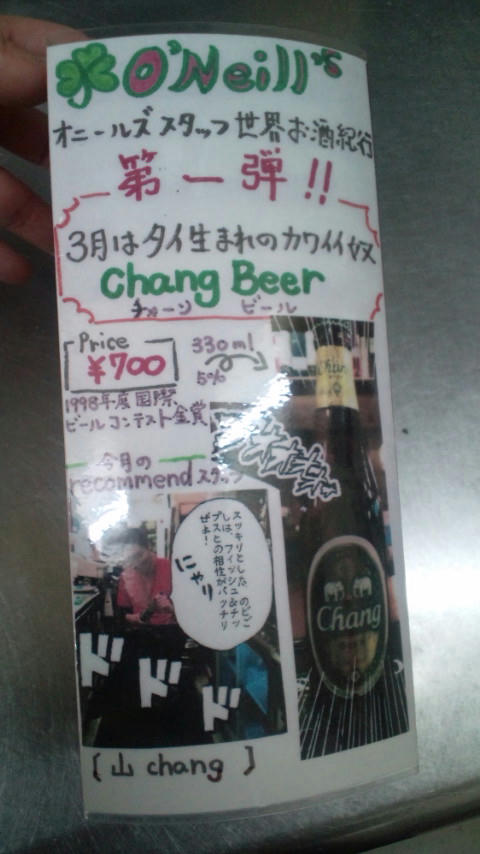 O'Neill's
オニールズスタッフ世界お酒紀行
第一弾!!
3月はタイ生まれのカワイイ奴
Chang Beer
チャーン ビール
Price
¥700
330ml
5%
1998年度国際、
ビールコンテスト金賞
今月の
recommendスタッフ
スッキリとしたのどご
しは、フィッシュ&チッ
プスとの相性がバッチリ
ぜよ!
にゃり
ドドド
Chang
Chang
[山 chang]